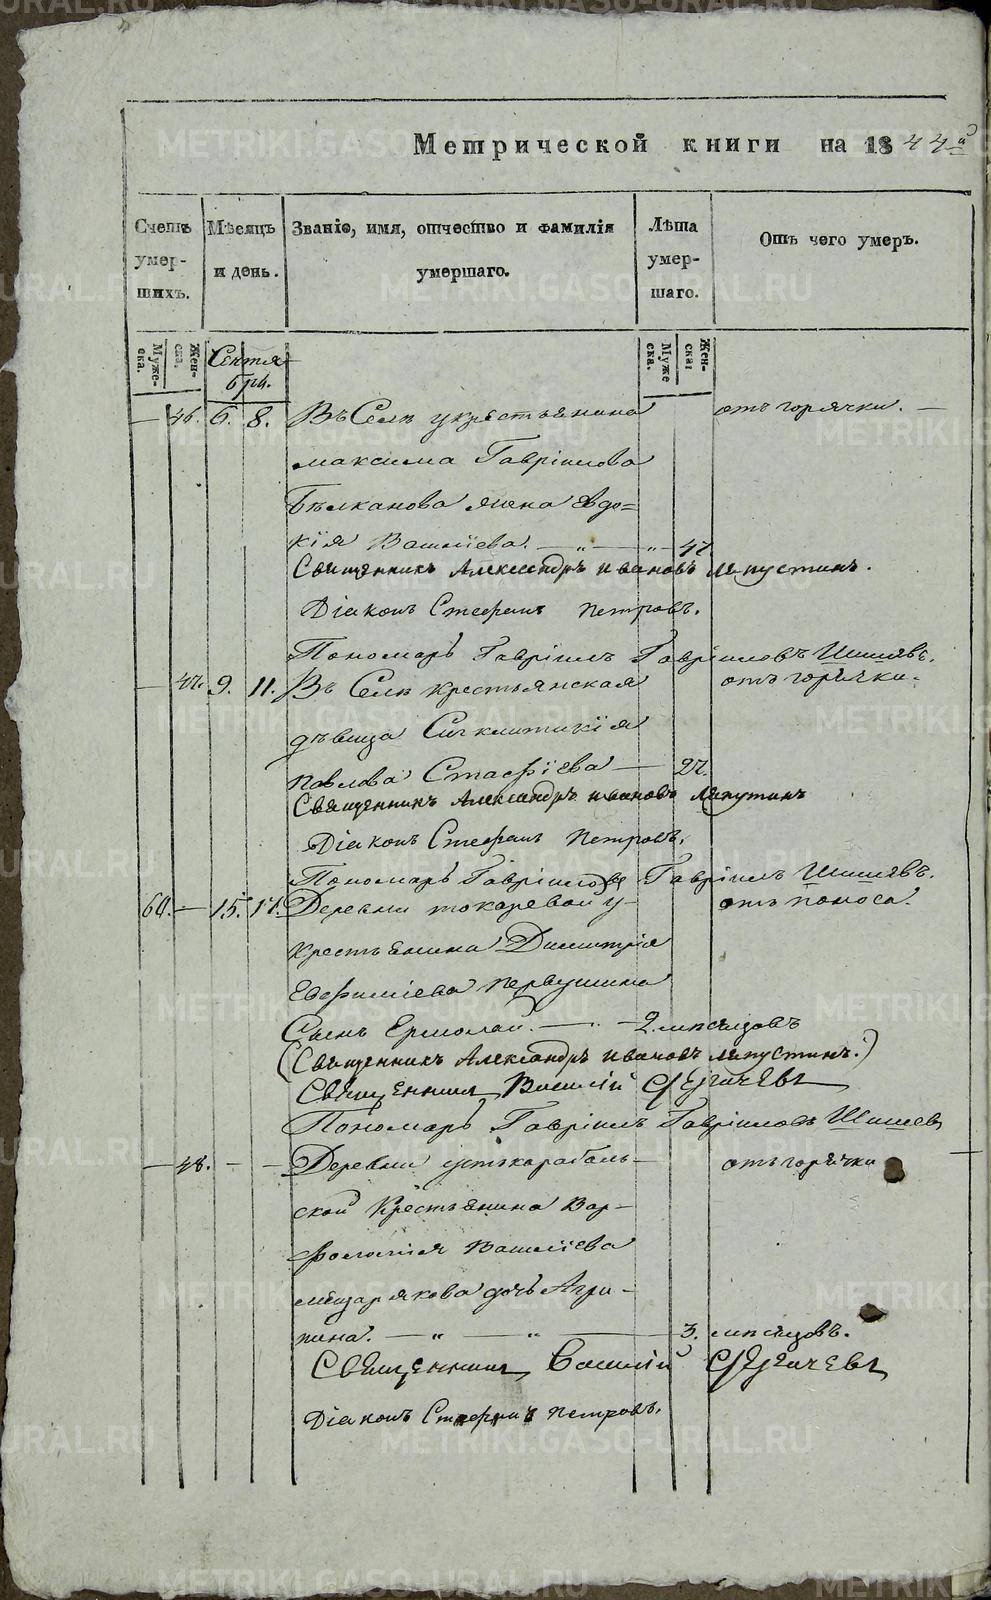 Метрической книги на 1844й
Счетъ умер-шихъ.
Мѣсяцъ и день.
Званіе, имя, отчество и фамилія умершаго.
Лѣта умер-шаго.
Отъ чего умеръ.
Муже-ска. Жен-ска. Сентя-бря. Муже-ска. Жен-ска.
— 46. 6. 8. Въ Селѣ у крестьянина отъ горячки. —
максима Гавріилова
Бѣлканова жена Евдо=
кія Василіева. — „ — „ — 47
Священникъ Александръ Ивановъ Ляпустинъ.
Діаконъ Стефанъ Петровъ.
Пономарь Гавріилъ Гавріиловъ Шишевъ.
— 47. 9. 11. Въ Селѣ крестьянская отъ горячки.
дѣвица Сигклитикія
Павлова Стафіева — 27.
Священникъ Александръ Ивановъ Ляпустинъ
Діаконъ Стефанъ Петровъ.
Пономарь Гавріилъ Шишевъ.
60. — 15. 17. Деревни токаревой у отъ поноса.
крестьянина Димитрія
Евфиміева Первушина
Сынъ Ермолай. — 2. мѣсяцовъ
(Священникъ Александръ Ивановъ Ляпустинъ.)
Священникъ Василій
Пономарь Гавріилъ Гавріиловъ Шишевъ
— 48. — — Деревни устькараболь- отъ горячки
ской Крестьянина Вар-
фоломія Василіева
мещарякова дочь Агри-
пина. — „ — „ — 3. мѣсяцовъ.
Священникъ Василій
Діаконъ Стефанъ Петровъ.
METRIKI.GASO-URAL.RU